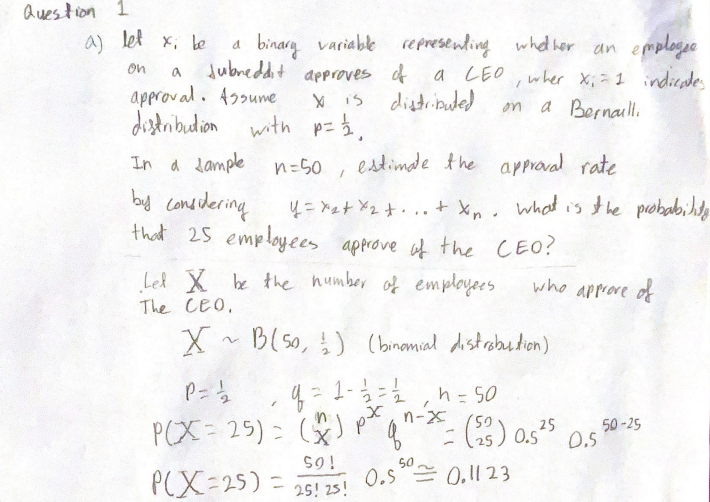 Question 1
a) let xᵢ be a binary variable representing whether an employee
on a subreddit approves of a CEO, wher xᵢ = 1 indicates
approval. Assume X is distributed on a Bernoulli
distribution with p = 1/2.
In a sample n=50, estimate the approval rate
by considering y = x₂ + x₂ + ... + xₙ. what is the probability
that 25 employees approve of the CEO?
Let X be the number of employees who approve of
The CEO.
X ~ B(50, 1/2) (binomial distrobution)
P = 1/2, q = 1 - 1/2 = 1/2, n = 50
P(X = 25) = (n X) p^X q^(n-X) = (50 25) 0.5^25 0.5^(50-25)
P(X=25) = 50!/(25! 25!) 0.5^50 ≅ 0.1123